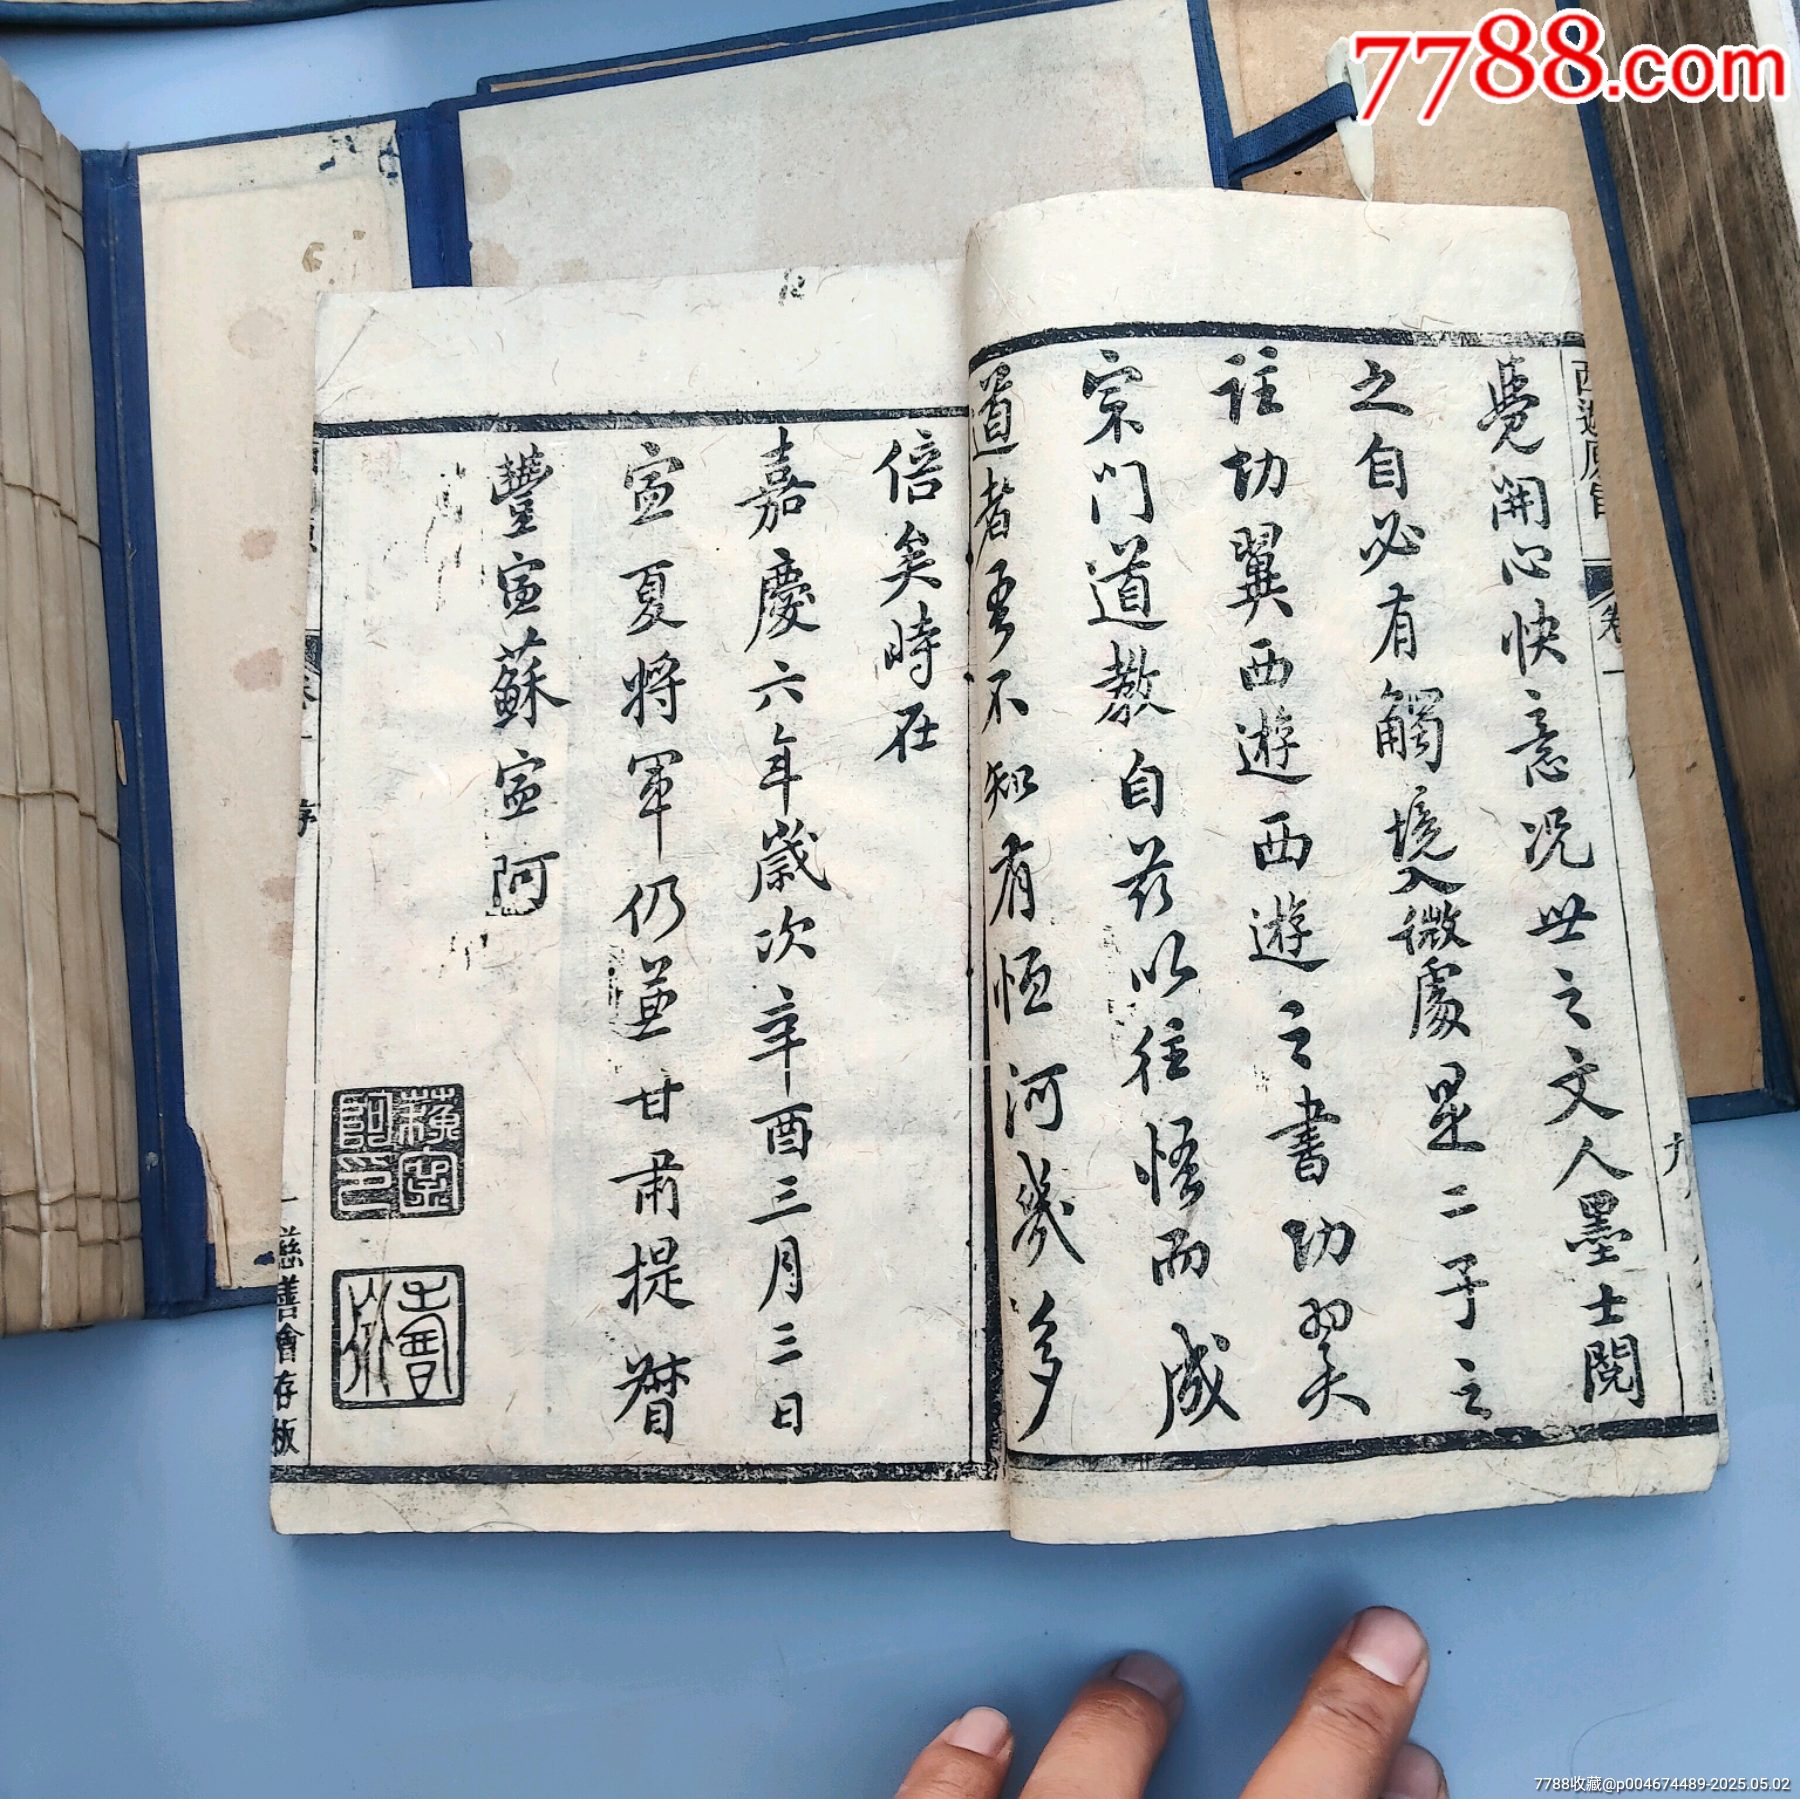 7788.com
西遊原旨
卷一
九
覺開心快意况世之文人墨士閱
之自必有觸境入微處是二子之
註功翼西遊西遊之書功翼
宗門道教自兹以往悟而成
道者吾不知有恒河幾多
倍矣時在
嘉慶六年歲次辛酉三月三日
寧夏將軍仍兼甘肅提督
豐寧蘇寧阿
蘇寧阿印
慈善會存板
7788收藏@p004674489-2025.05.02